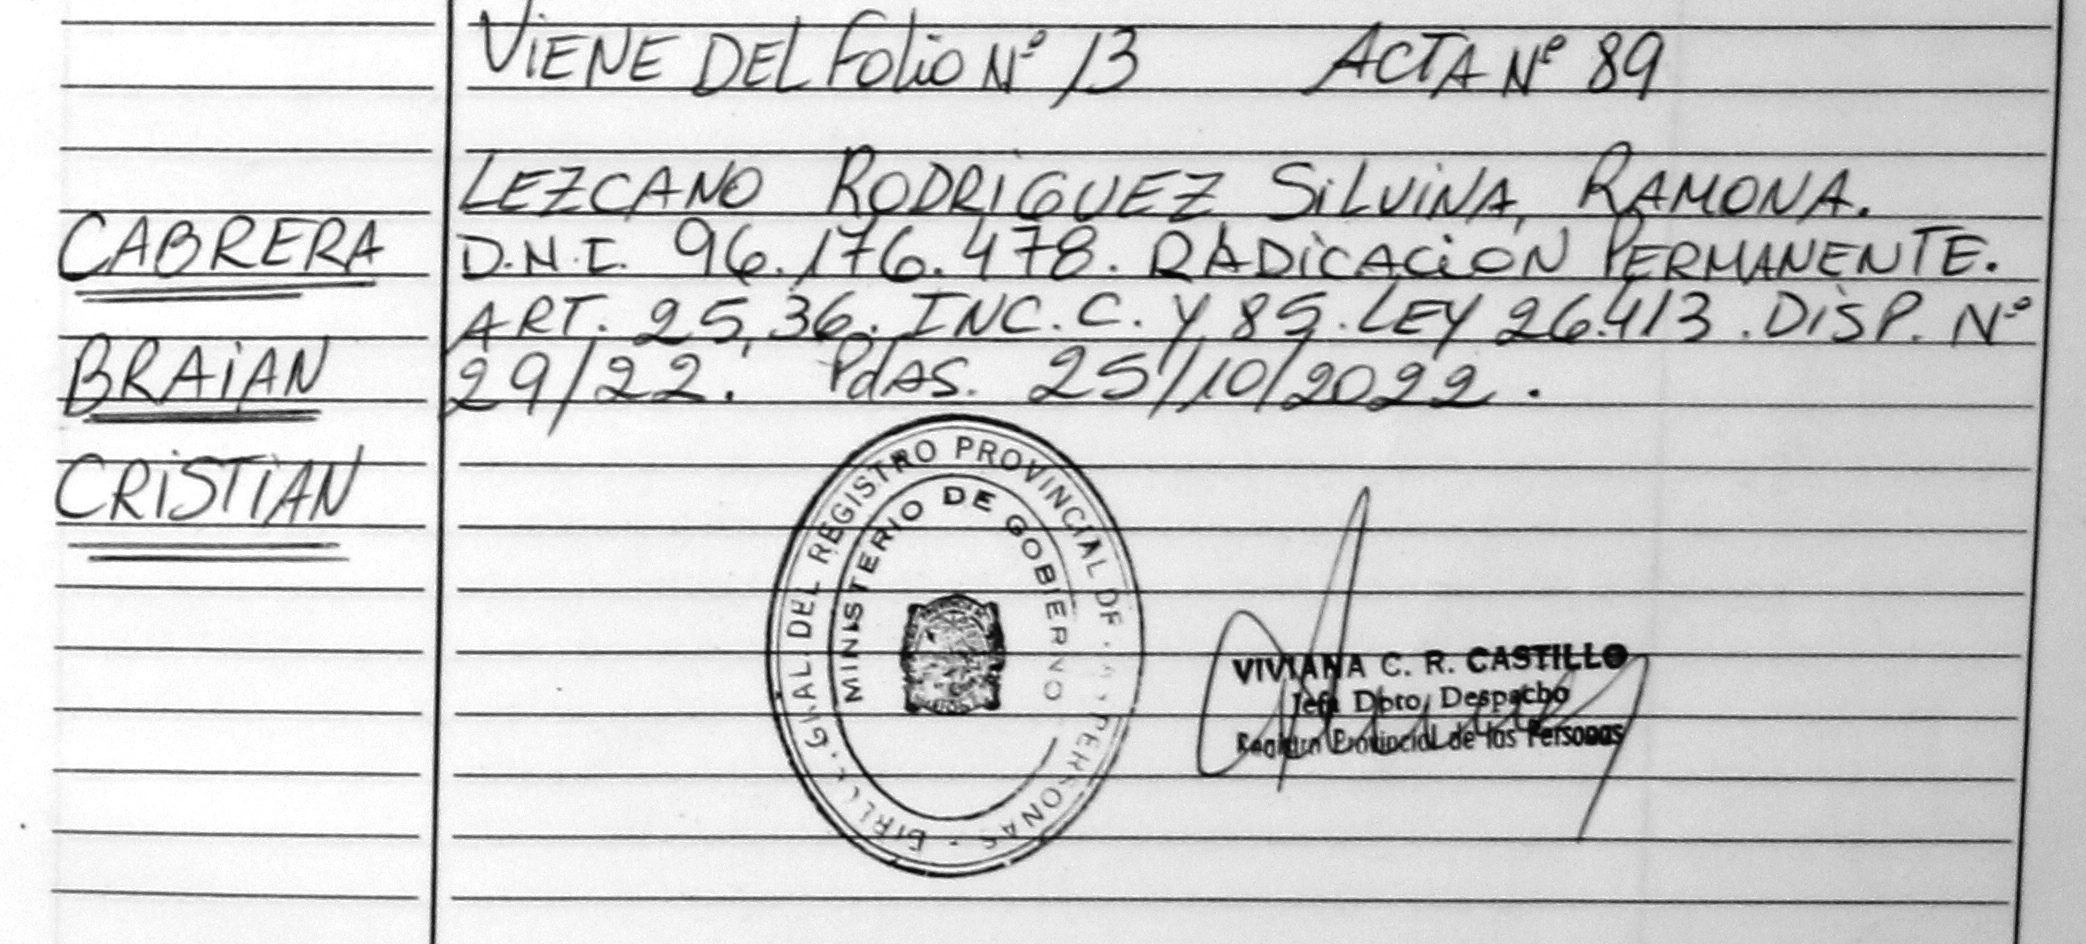 VIENE DEL Folio Nº 13 ACTA Nº 89
CABRERA
BRAIAN
CRISTIAN
LEZCANO RODRIGUEZ SILVINA, RAMONA.
D.N.I. 96.176.478. RADICACIÓN PERMANENTE.
ART. 25, 36. INC. C. Y 85. LEY 26.413. DISP. Nº
29/22. PdAS. 25/10/2022.
GRAL. DEL REGISTRO PROVINCIAL DE PERSONAS
MINISTERIO DE GOBIERNO
VIVIANA C. R. CASTILLO
Jefa Dpto. Despacho
Registro Provincial de las Personas